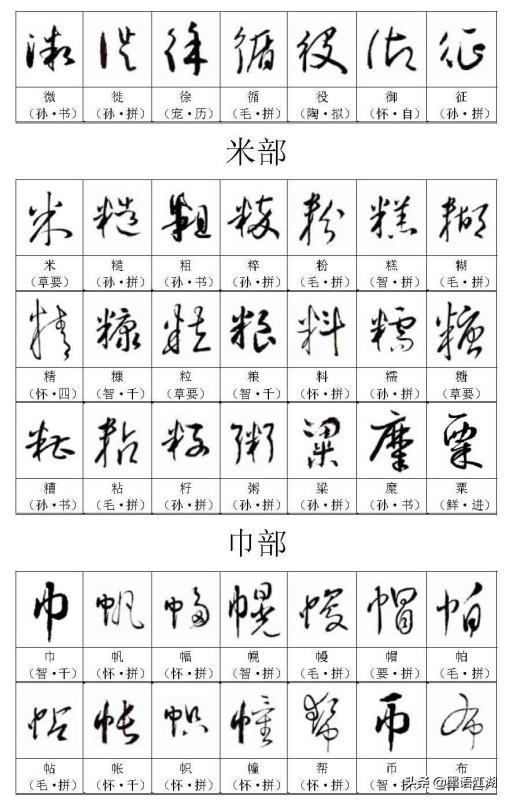 微 徙 徐 循 役 御 征
（孙·书） （孙·拼） （宠·历） （毛·拼） （陶·拟） （怀·自） （孙·拼）
米部
米 糙 粗 粹 粉 糕 糊
（草要） （孙·拼） （孙·书） （孙·拼） （毛·拼） （智·拼） （毛·拼）
精 糠 粒 粮 料 糯 糖
（怀·四） （智·千） （草要） （智·千） （怀·拼） （孙·拼） （草要）
糟 粘 籽 粥 粱 糜 栗
（孙·书） （毛·拼） （孙·拼） （孙·拼） （孙·拼） （孙·书） （鲜·进）
巾部
巾 帆 幅 幌 幔 帽 帕
（智·千） （怀·拼） （怀·拼） （智·拼） （毛·拼） （要·拼） （毛·拼）
帖 帐 帜 幢 帮 币 布
（毛·拼） （怀·千） （怀·拼） （怀·拼） （孙·拼） （智·拼
头条 @墨语江湖